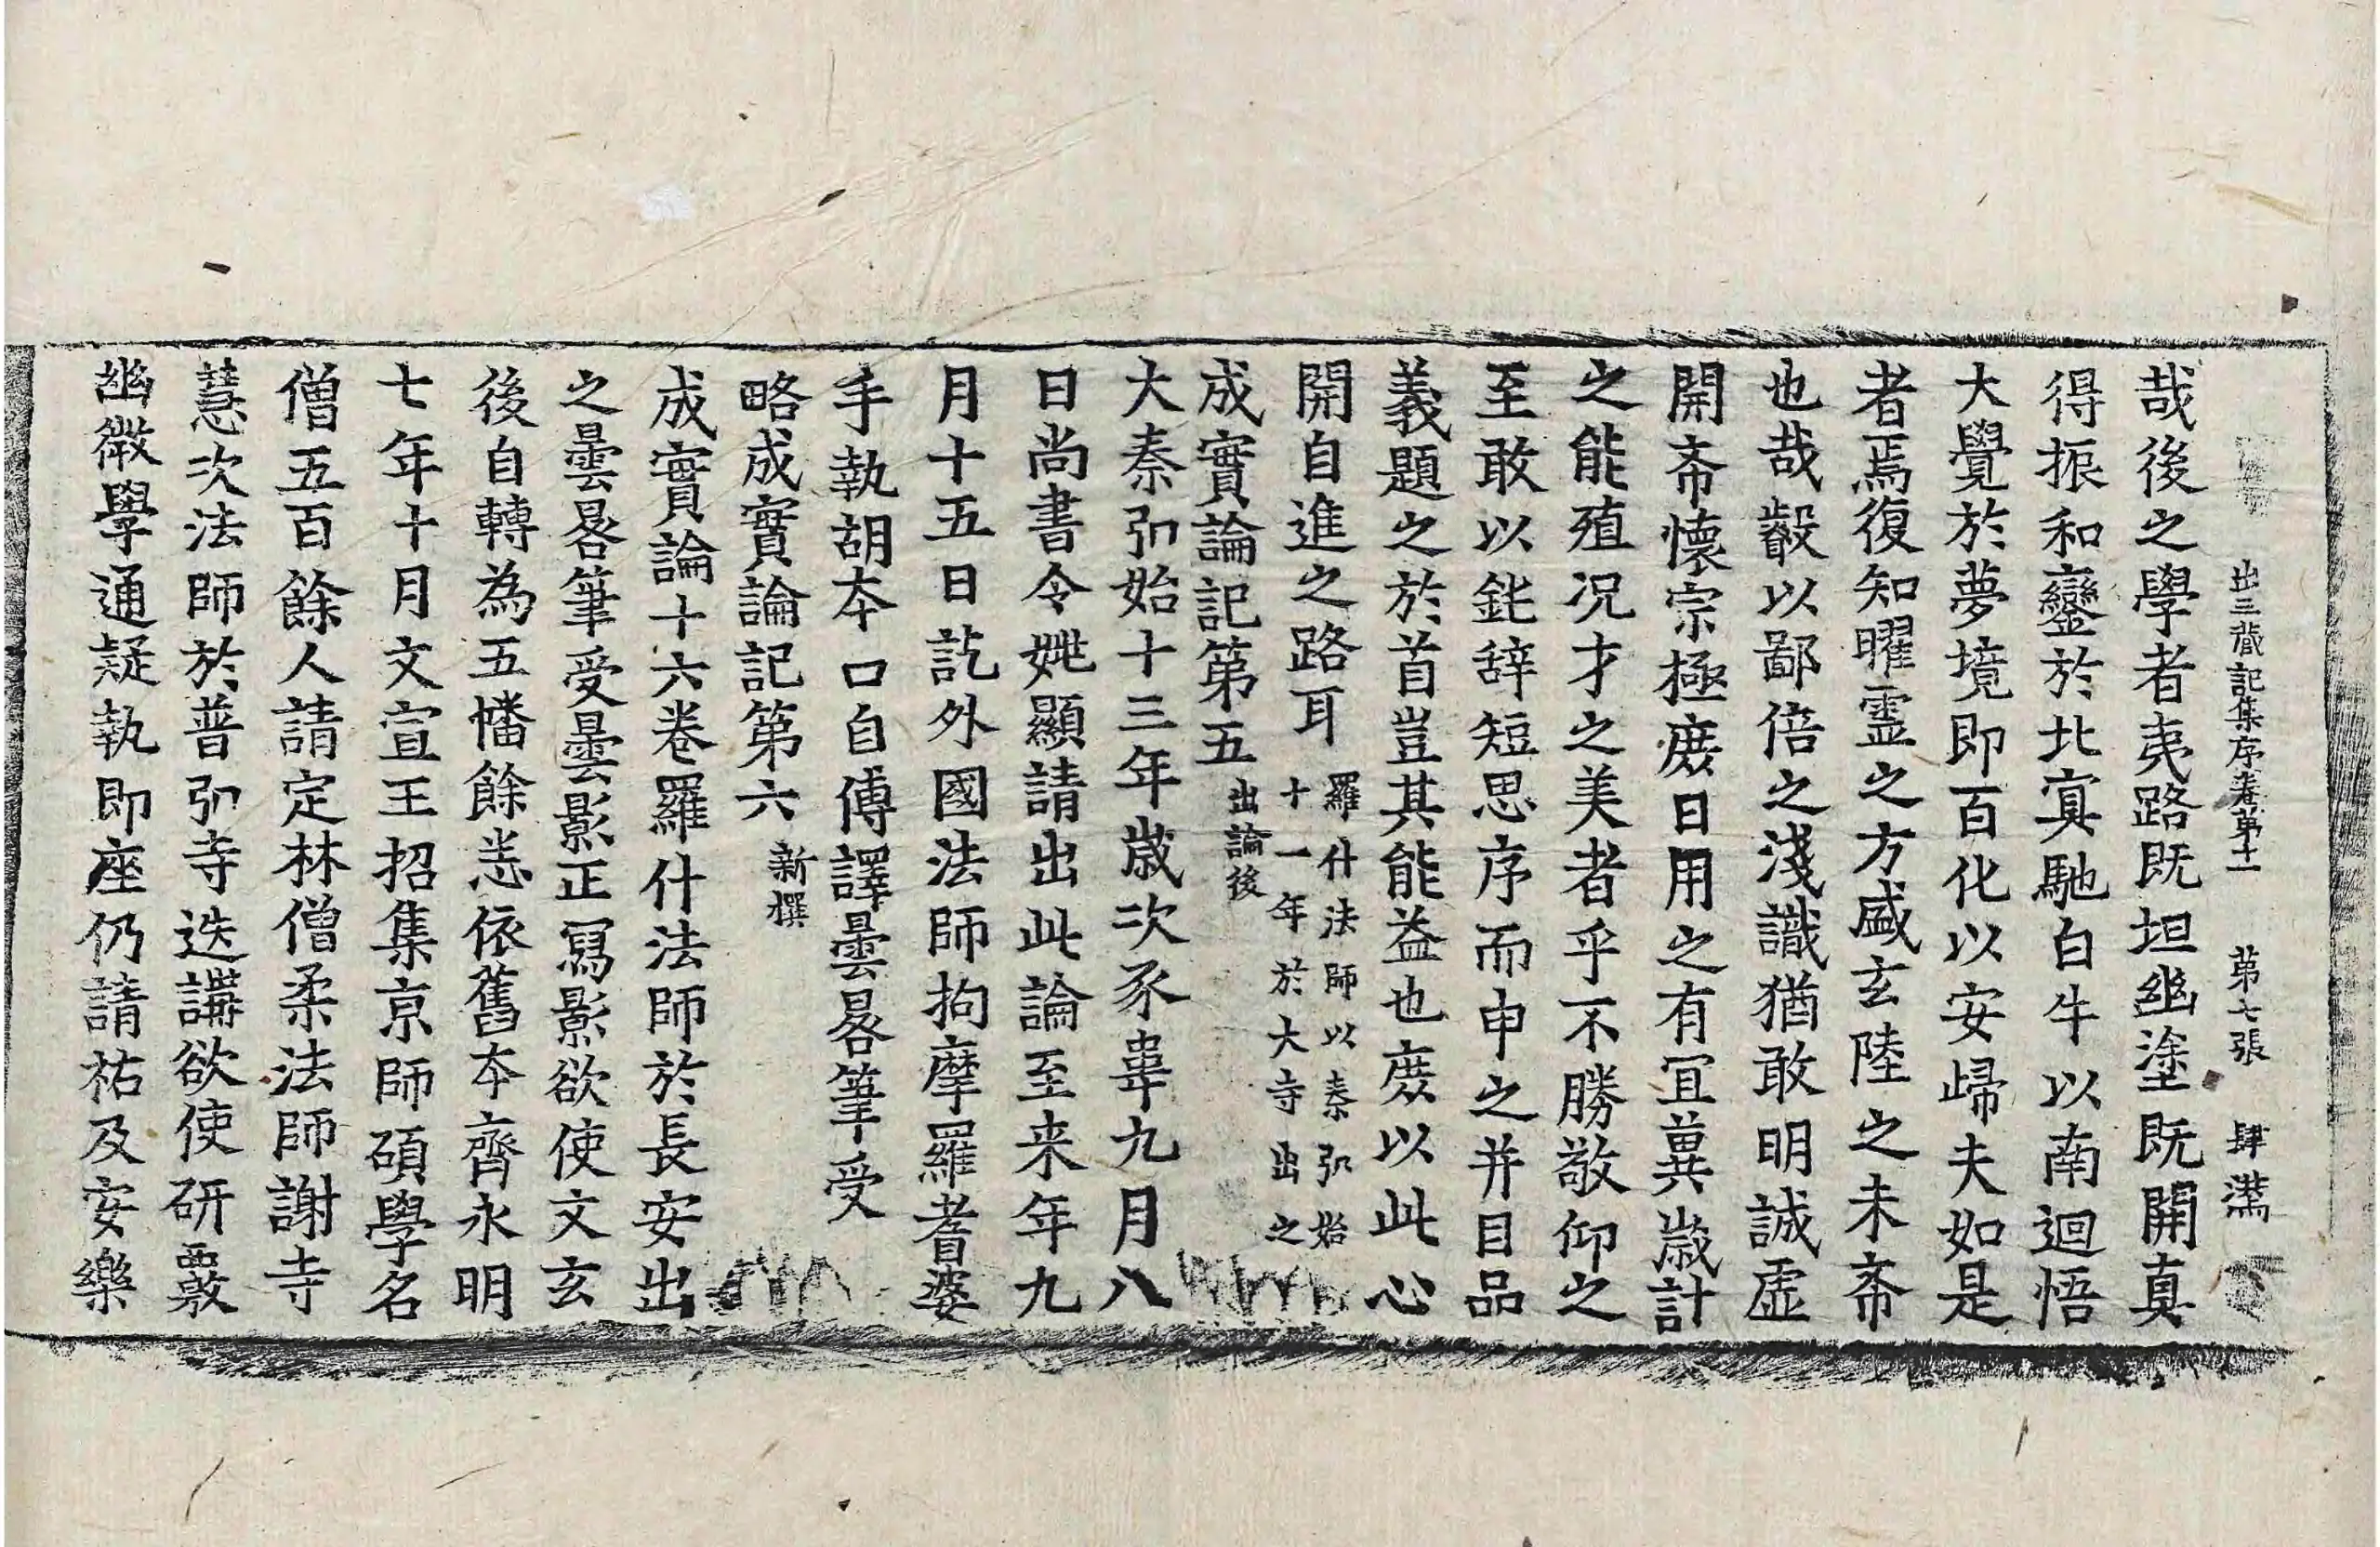 出三蔵記集序卷第十一 第七張 肆満
哉後之學者夷路既坦幽塗既開真
得振和鸞於北㝠馳白牛以南迴悟
大覺於夢境即百化以安歸夫如是
者焉復知曜靈之方盛玄陸之未希
也哉㲉以鄙倍之淺識猶敢明誠虛
開希懷宗極庻日用之有冝冀歲計
之能殖况才之美者乎不勝敬仰之
至敢以鈍辞短思序而申之并目品
義題之於首豈其能益也庻以此心
開自進之路耳 羅什法師以秦弘始十一年於大寺出之
成實論記第五 出論後
大秦弘始十三年歲次豕韋九月八
日尚書令姚顯請出此論至来年九
月十五日訖外國法師拘摩羅耆婆
手執胡夲口自傳譯曇晷筆受
略成實論記第六 新撰
成實論十六卷羅什法師於長安出
之曇晷筆受曇影正冩影欲使文玄
後自轉為五幡餘悉依舊夲齊永明
七年十月文宣王招集京師碩學名
僧五百餘人請定林僧柔法師謝寺
慧次法師於普弘寺迭講欲使研覈
幽微學通疑執即座仍請祐及安樂